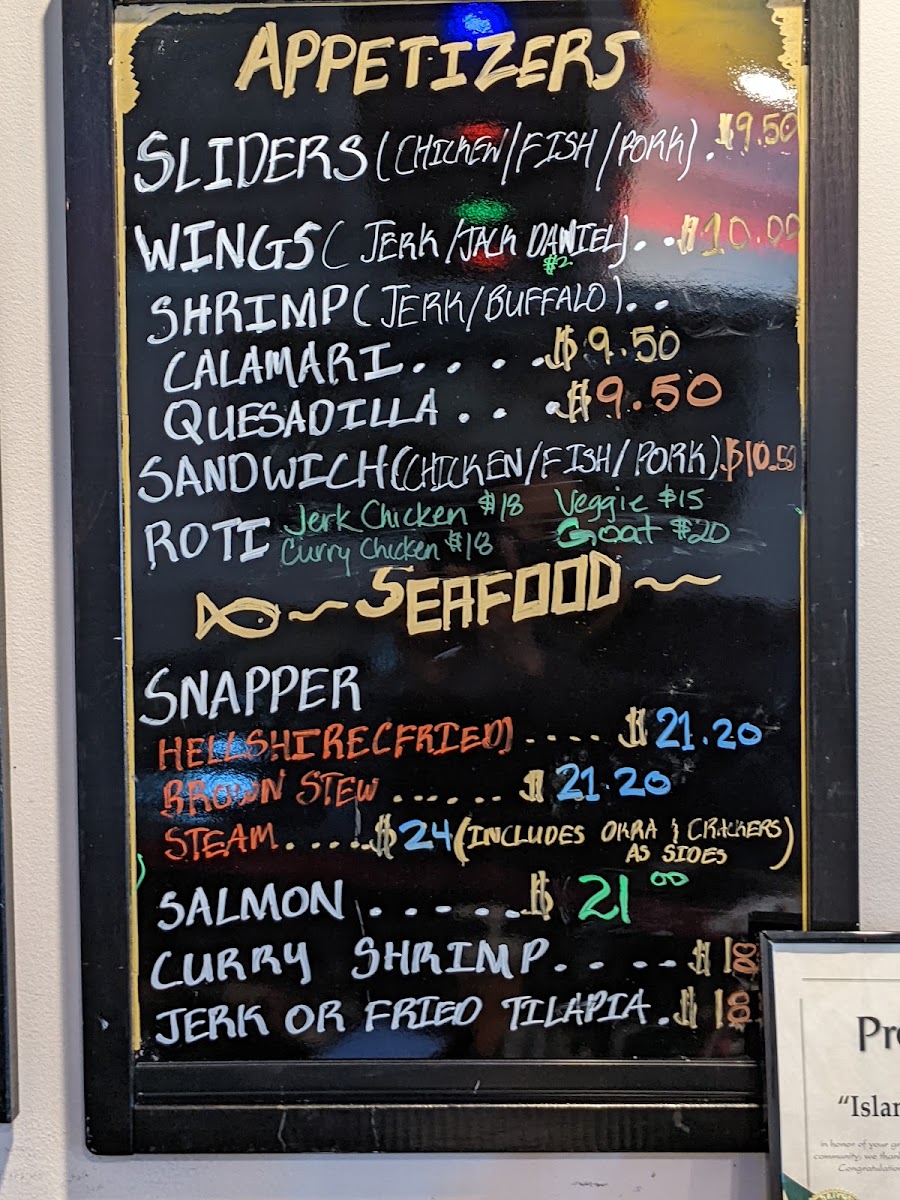 APPETIZERS
SLIDERS (CHICKEN/FISH/PORK). $9.50
WINGS (JERK/JACK DANIEL).. $10.00
$2
SHRIMP (JERK/BUFFALO)..
CALAMARI..... $9.50
QUESADILLA... $9.50
SANDWICH (CHICKEN/FISH/PORK) $10.50
ROTI Jerk Chicken $18 Veggie $15
Curry Chicken $18 Goat $20
~SEAFOOD~
SNAPPER
HELLSHIRE(FRIED) .... $21.20
BROWN STEW ...... $21.20
STEAM..... $24 (INCLUDES OKRA & CRACKERS
AS SIDES)
SALMON ..... $21 00
CURRY SHRIMP.... $18
JERK OR FRIED TILAPIA. $18
in honor of your
community, we
Congratulation